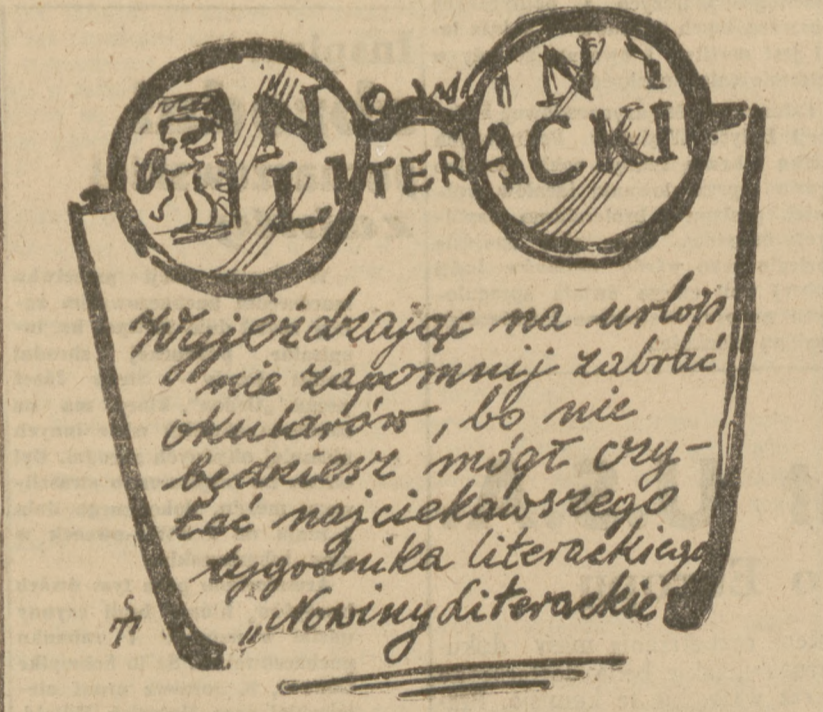 NOWINY
LITERACKI
Wyjeżdżając na urlop
nie zapomnij zabrać
okularów, bo nie
będziesz mógł czy-
tać najciekawszego
tygodnika literackiego
„Nowiny Literackie